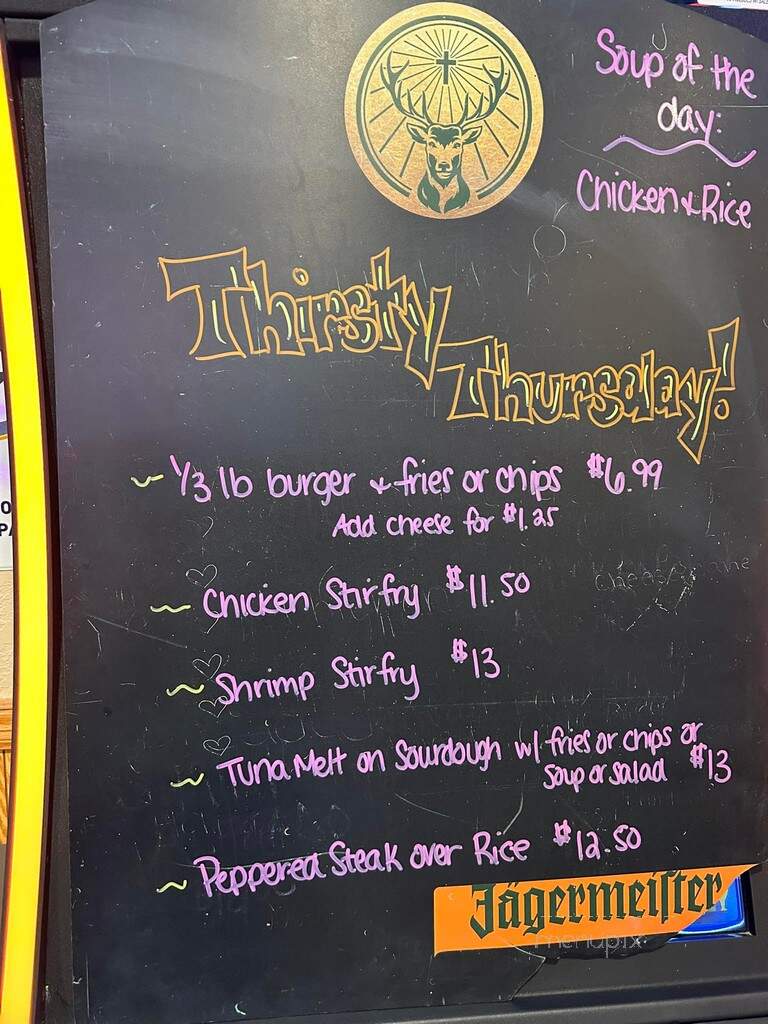 Soup of the
day:
Chicken & Rice
Thirsty
Thursday!
~ 1/3 lb burger & fries or chips $6.99
Add cheese for $1.25
~ Chicken Stirfry $11.50
~ Shrimp Stirfry $13
~ Tuna Melt on Sourdough w/ fries or chips or
soup or salad $13
~ Peppered Steak over Rice $12.50
Jägermeiſter
menupix